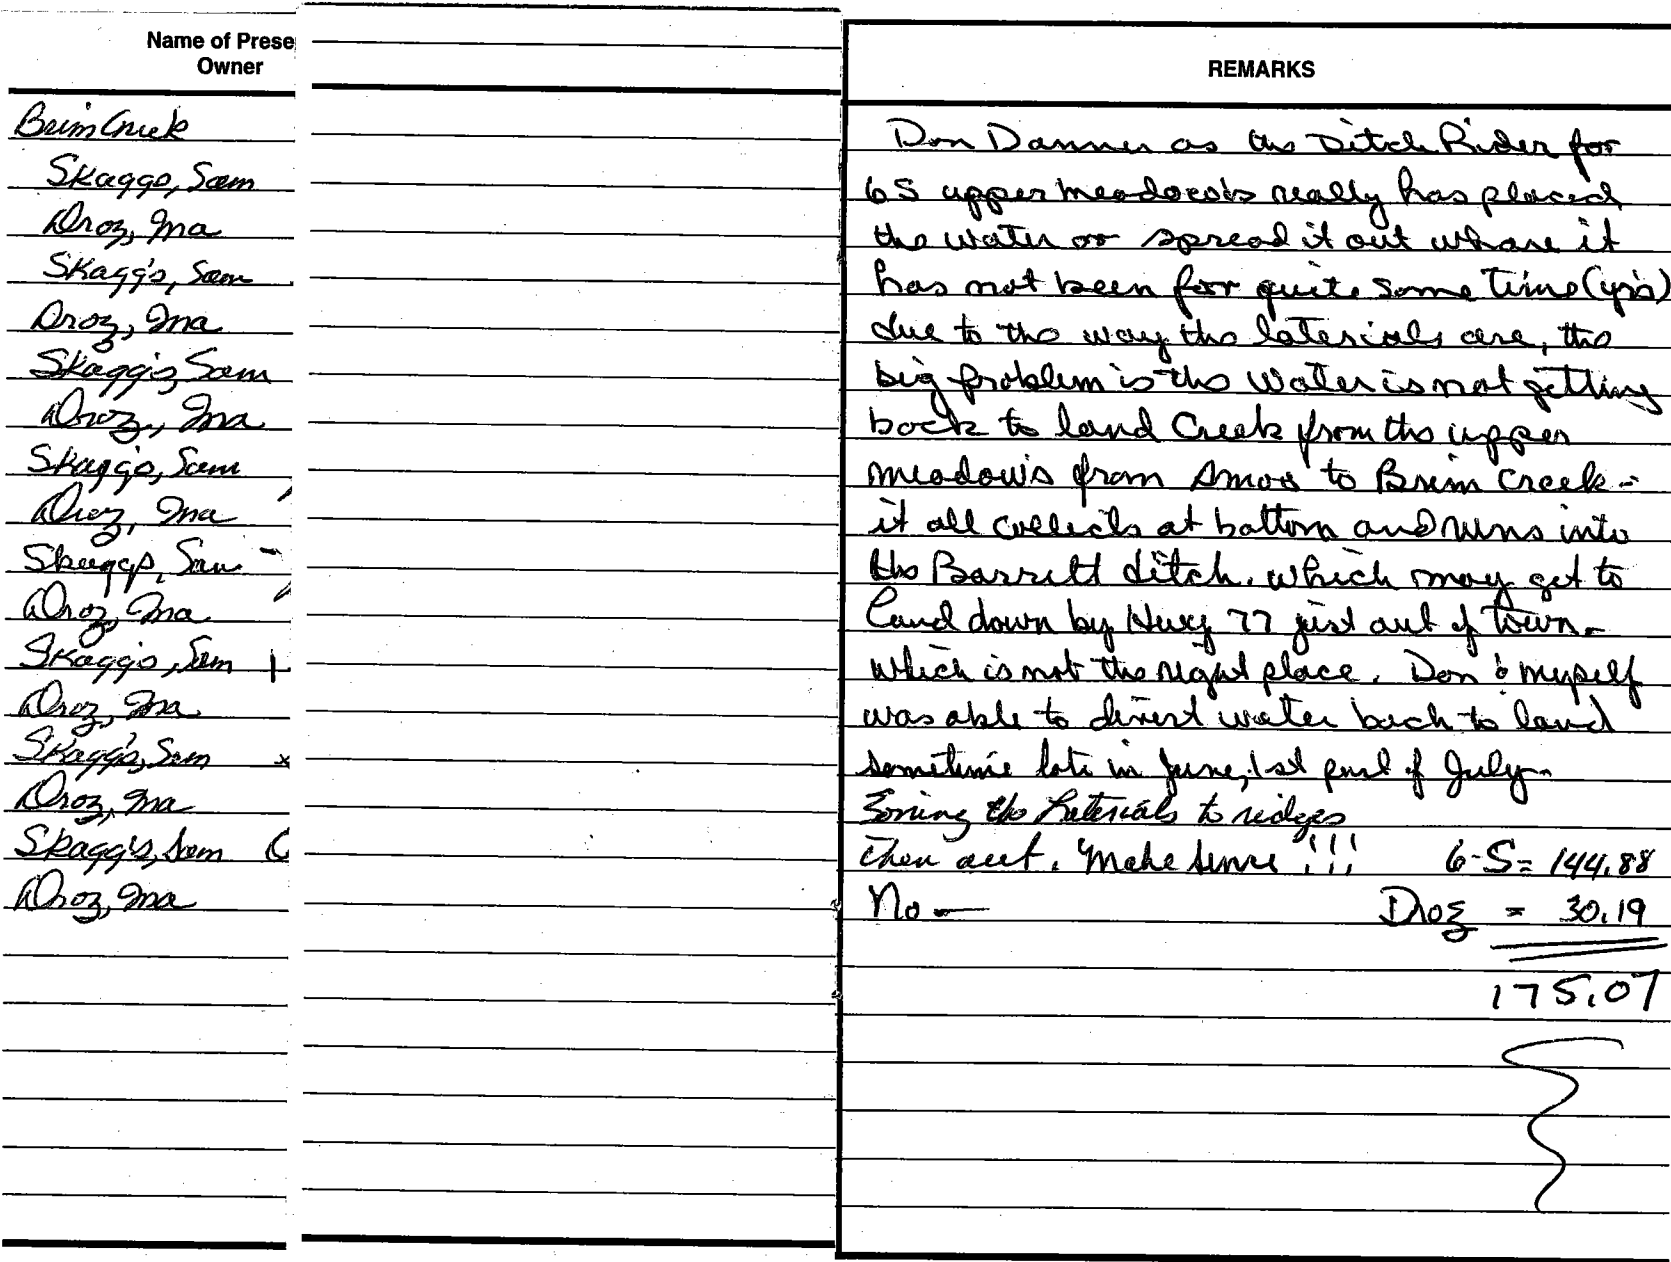 Name of Prese
Owner
Brim Creek
Skaggs, Sam
Droz, Ina
Skaggs, Sam
Droz, Ina
Skaggs, Sam
Droz, Ina
Skaggs, Sam
Droz, Ina
Skaggs, Sam
Droz, Ina
Skaggs, Sam
Droz, Ina
Skaggs, Sam
Droz, Ina
Skaggs, Sam
Droz, Ina
REMARKS
Don Danner as the Ditch Rider for
6S upper meadows really has placed
the water or spread it out where it
has not been for quite some time (yrs)
due to the way the laterials are, the
big problem is the water is not getting
back to land Creek from the upper
meadow's from to Brim Creek -
it all collects at bottom and runs into
the Barrett ditch. which may get to
land down by Hwy 77 just out of town -
which is not the right place. Don & myself
was able to divert water back to land
sometime late in June, 1st part of July -
the laterials to ridges
then out. "Make sense"!!!
6-S = 144.88
No —
Droz = 30.19
175.07